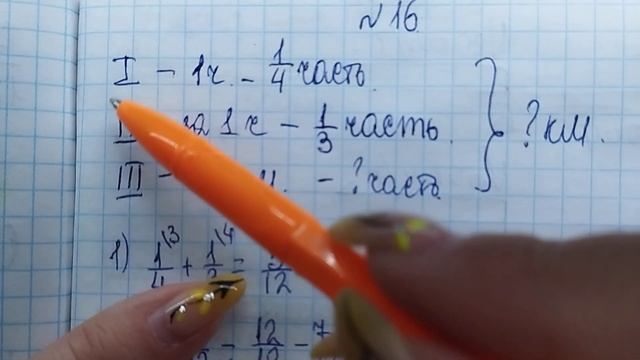 №16.
I – 1ч. – 1/4 часть.
за 1ч – 1/3 часть. } ? км.
III – ч. – ? часть
1) 1/4 \3 + 1 \4 = /12
= 12 – 7